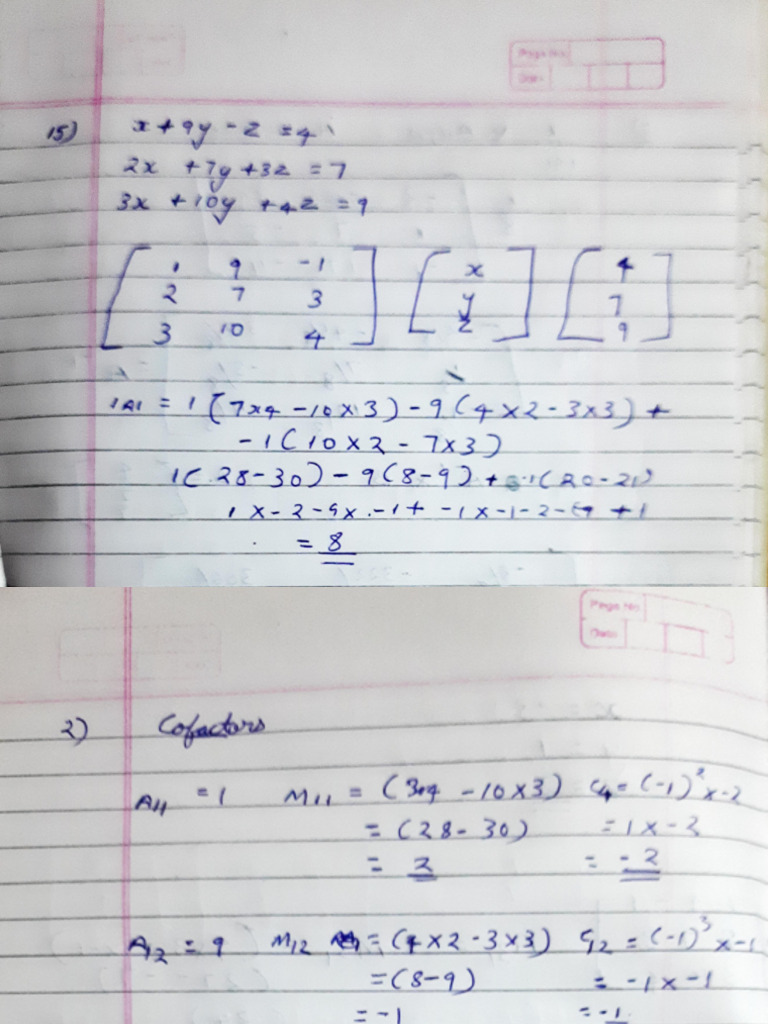 Page No.
Date
15) x + 9y - z = 4
2x + 7y + 3z = 7
3x + 10y + 4z = 9
[ 1 9 -1 ] [ x ] [ 4 ]
[ 2 7 3 ] [ y ] [ 7 ]
[ 3 10 4 ] [ z ] [ 9 ]
|A| = 1 (7×4 - 10×3) - 9 (4×2 - 3×3) +
-1 (10×2 - 7×3)
1(28-30) - 9(8-9) + -1(20-21)
1 × -2 - 9× -1 + -1× -1 -2 -(9 + 1
= 8
Page No.
Date
2) Cofactors
A11 = 1 M11 = ( - 10×3) C11 = (-1)² × -2
= (28 - 30) = 1 × -2
= 2 = -2
A12 = 9 M12 = (4×2 - 3×3) C12 = (-1)³ × -1
= (8-9) = -1 × -1
= -1 = -1